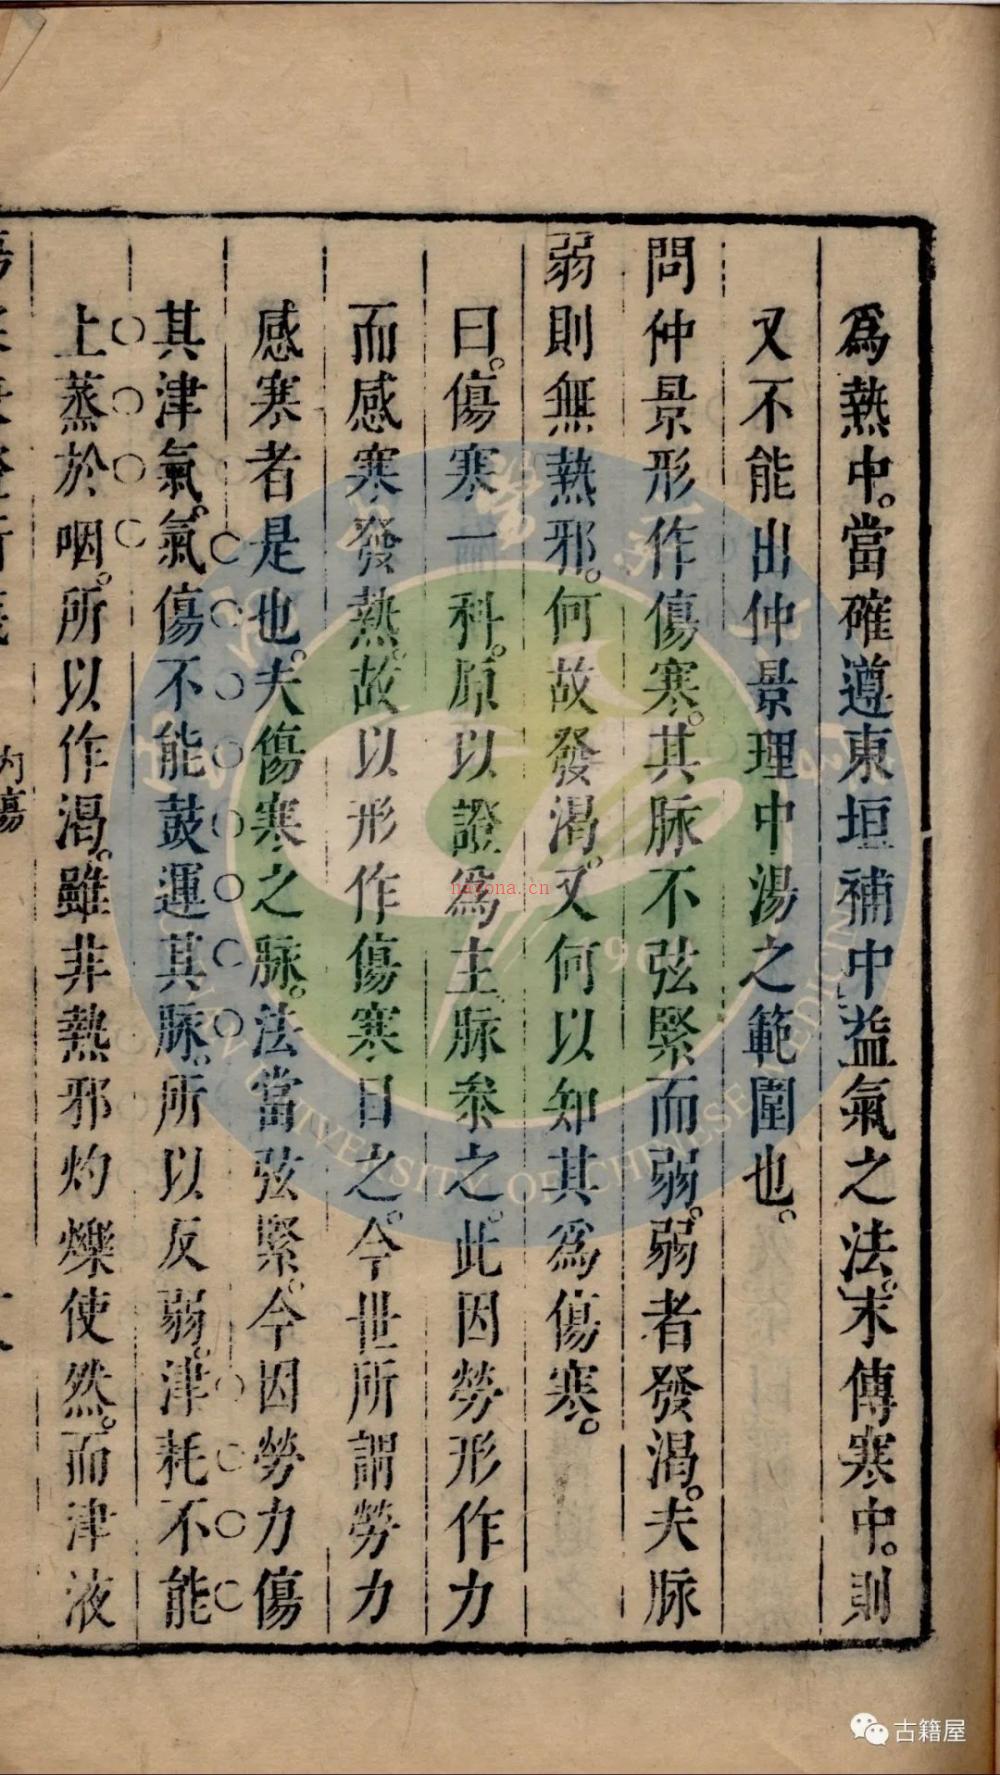 爲熱中。當確遵東垣補中益氣之法。末傳寒中。則
又不能出仲景理中湯之範圍也。
問仲景形作傷寒。其脉不弦緊而弱。弱者發渴。夫脉
弱則無熱邪。何故發渴。又何以知其爲傷寒。
曰。傷寒一科。原以證爲主。脉叅之。此因勞形作力
而感寒發熱。故以形作傷寒目之。今世所謂勞力
感寒者是也。夫傷寒之脉。法當弦緊。今因勞力傷
其津氣。氣傷不能鼓運其脉。所以反弱。津耗不能
上蒸於咽。所以作渴。雖非熱邪灼爍使然。而津液
內傷
nayona.cn
UNIVERSITY OF CHINESE MEDICINE
古籍屋